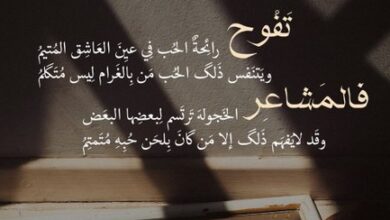 تَفُوح رائحةٌ الحُب في عينَ العَاشِق المُتيمُ
ويَتَنَفَس ذَلَكَ الحُب مَن بِالغَرام لِيس مُتَكلمُ
فالمَشاعرِ الخَجولهَ تَرتَسم لِبعضِها البعَض
وقَد لايفهَم ذَلِكَ إلا مَن كَانَ بِلحَن حُبِهِ مُتَمتِمُ